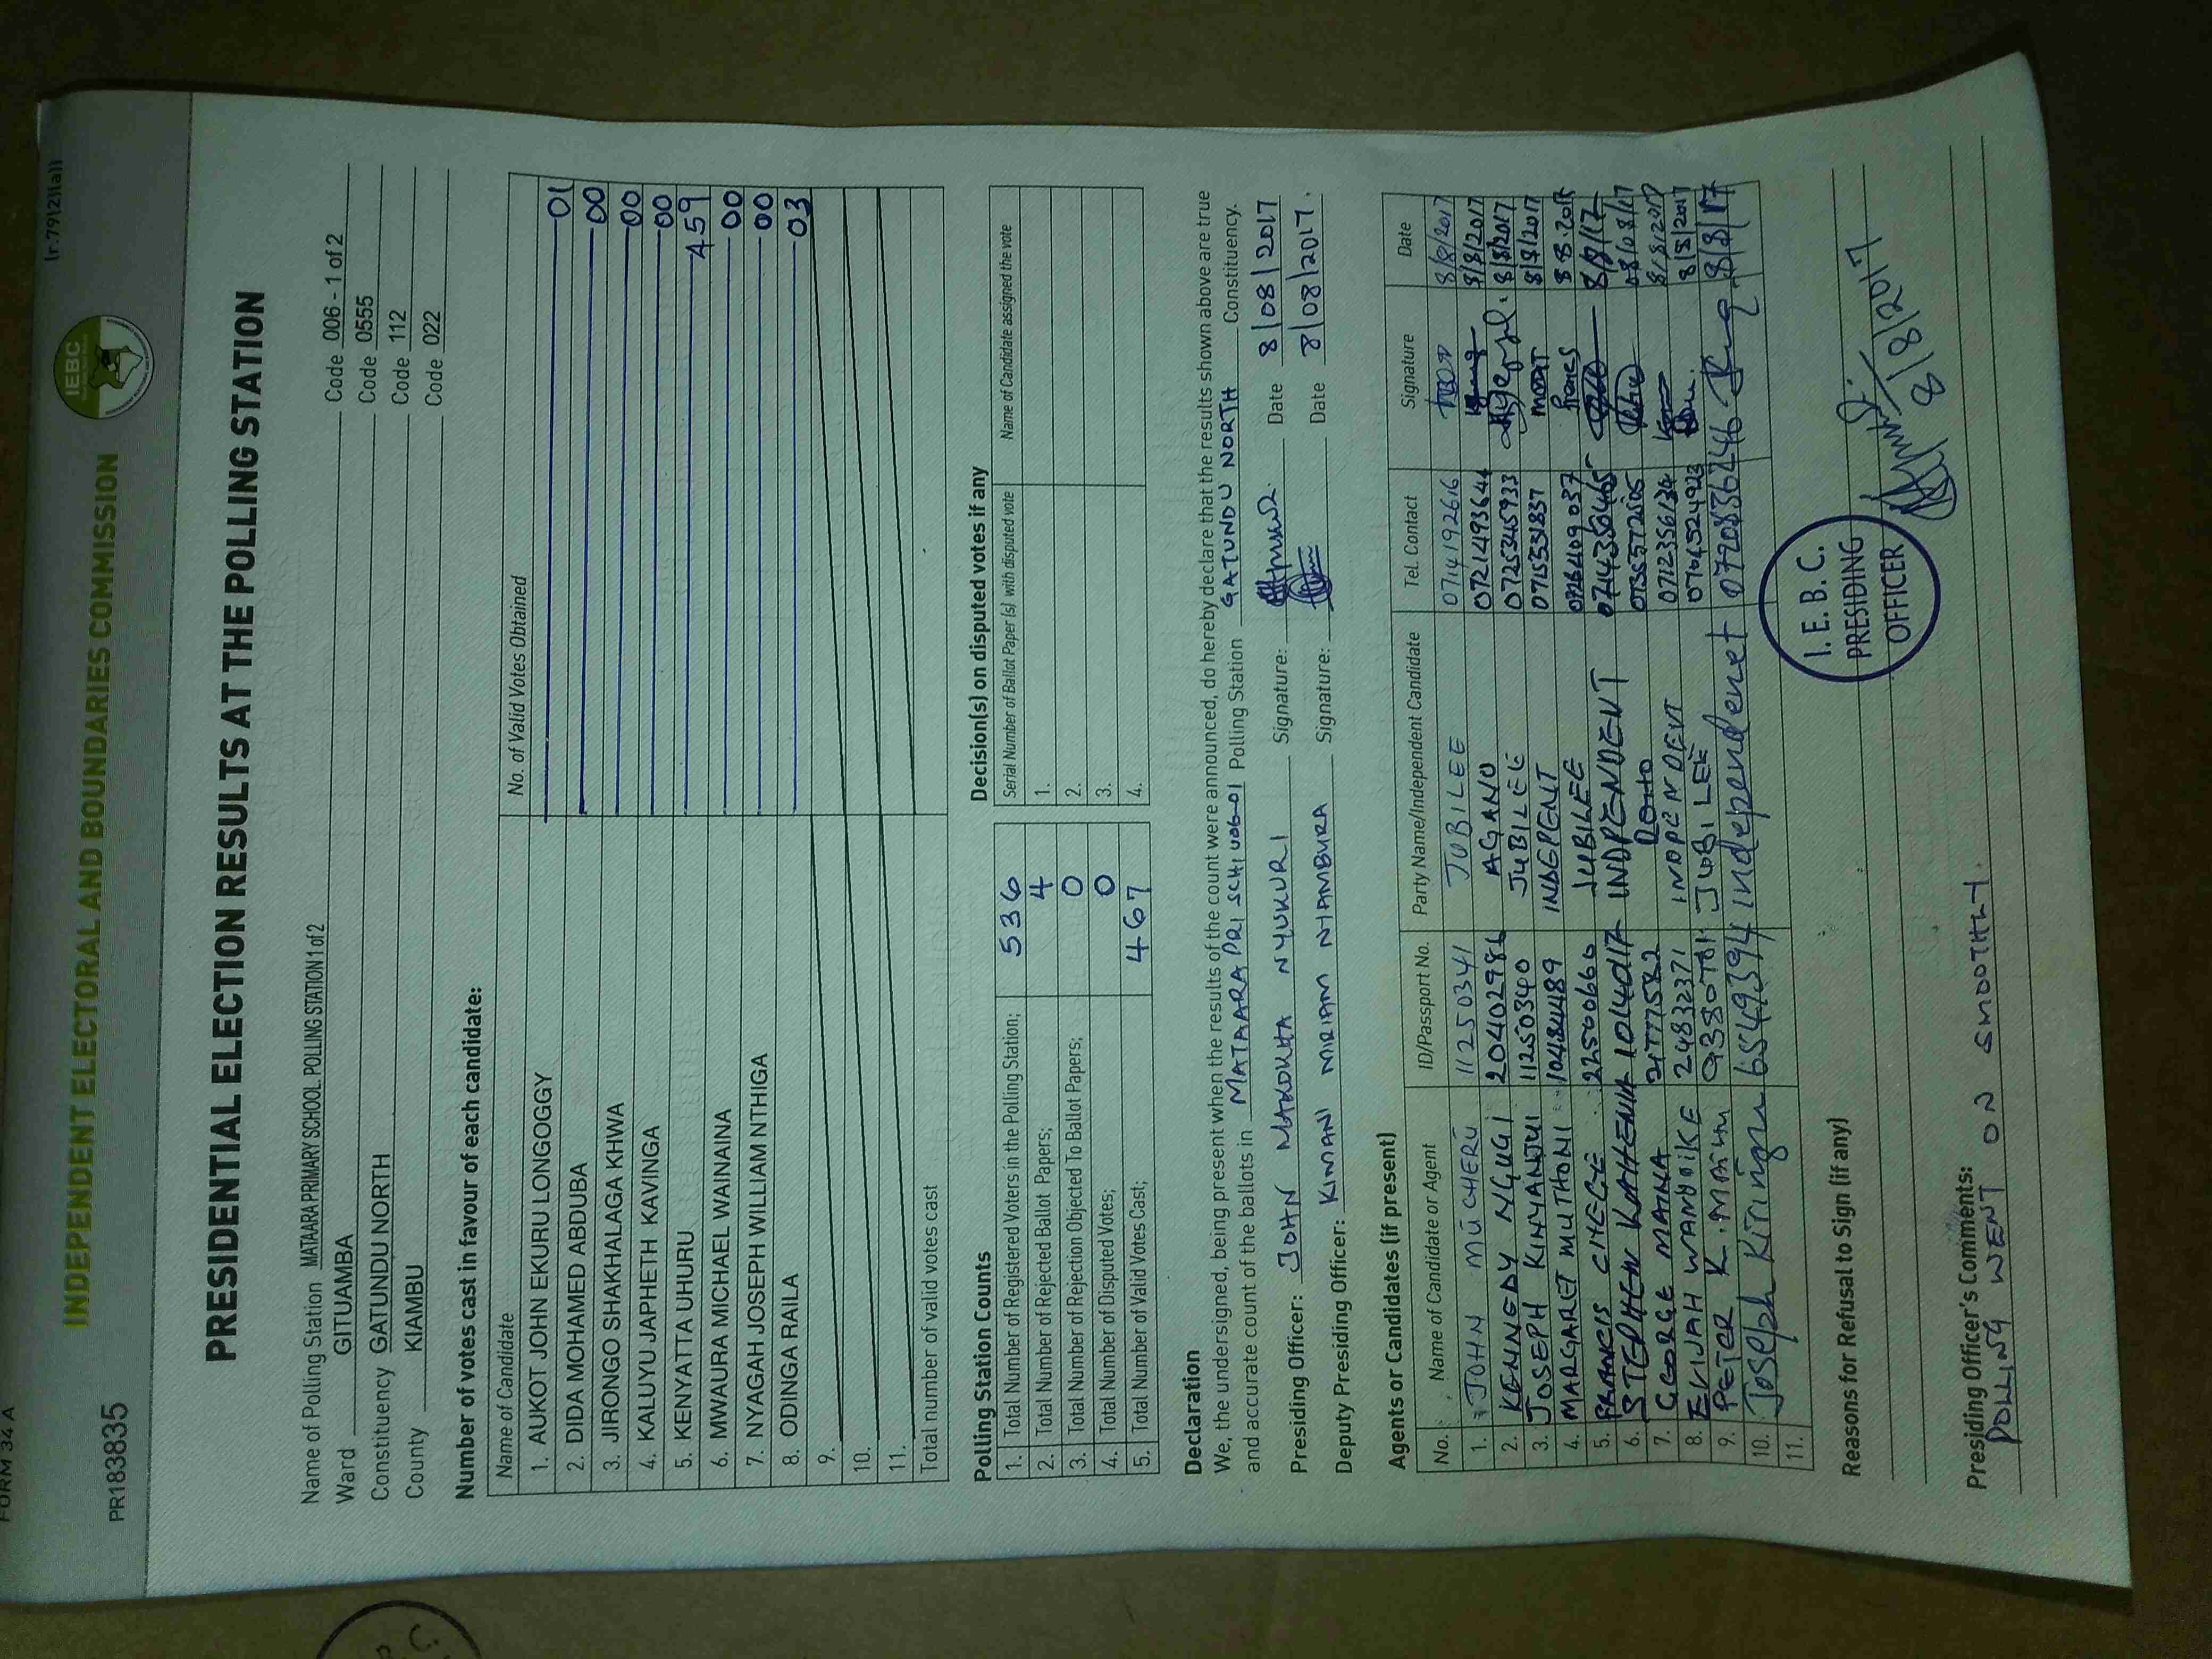 FORM 34 A
(r.79(2)(a))
PR183835
INDEPENDENT ELECTORAL AND BOUNDARIES COMMISSION
IEBC
PRESIDENTIAL ELECTION RESULTS AT THE POLLING STATION
Name of Polling Station MATAARA PRIMARY SCHOOL POLLING STATION 1 of 2 Code 006 - 1 of 2
Ward GITUAMBA Code 0555
Constituency GATUNDU NORTH Code 112
County KIAMBU Code 022
Number of votes cast in favour of each candidate:
Name of Candidate No. of Valid Votes Obtained
1. AUKOT JOHN EKURU LONGOGGY 01
2. DIDA MOHAMED ABDUBA 00
3. JIRONGO SHAKHALAGA KHWA 00
4. KALUYU JAPHETH KAVINGA 00
5. KENYATTA UHURU 459
6. MWAURA MICHAEL WAINAINA 00
7. NYAGAH JOSEPH WILLIAM NTHIGA 00
8. ODINGA RAILA 03
9.
10.
11.
Total number of valid votes cast
Polling Station Counts
1. Total Number of Registered Voters in the Polling Station; 536
2. Total Number of Rejected Ballot Papers; 4
3. Total Number of Rejection Objected To Ballot Papers; 0
4. Total Number of Disputed Votes; 0
5. Total Number of Valid Votes Cast; 467
Decision(s) on disputed votes if any
Serial Number of Ballot Paper (s) with disputed vote Name of Candidate assigned the vote
1.
2.
3.
4.
Declaration
We, the undersigned, being present when the results of the count were announced, do hereby declare that the results shown above are true
and accurate count of the ballots in MATAARA PRI SCH 006-01 Polling Station GATUNDU NORTH Constituency.
Presiding Officer: JOHN MAKOKHA NYUKURI Signature: Date 8/08/2017
Deputy Presiding Officer: KIMANI MIRIAM NYAMBURA Signature: Date 8/08/2017.
Agents or Candidates (if present)
No. Name of Candidate or Agent ID/Passport No. Party Name/Independent Candidate Tel. Contact Signature Date
1. JOHN MUCHERU 11250341 JUBILEE 0714192616 8/8/2017
2. KENNEDY NGUGI 20402986 AGANO 0721493644 8/8/2017
3. JOSEPH KINYANJUI 11250340 JUBILEE 0725345933 8/8/2017
4. MARGARET MUTHONI 10484489 INDEPENT 0715531837 8/8/2017
5. FRANCIS 22500666 JUBILEE 0726409037 8.8.2017
6. STEPHEN INDPENDENT 8/8/17
7. GEORGE MAINA 08/08/17
8. ELIJAH WAMBOIKE 24832371 INDPENDENT 0712356136 8/8/2017
9. PETER K. MAINA JUBILEE 0704524923 8/8/2017
10. Joseph Kiringu 6549394 independenet 8/8/17
11.
I.E.B.C.
PRESIDING
OFFICER
8/8/2017
Reasons for Refusal to Sign (if any)
Presiding Officer's Comments:
POLLING WENT ON SMOOTHLY.